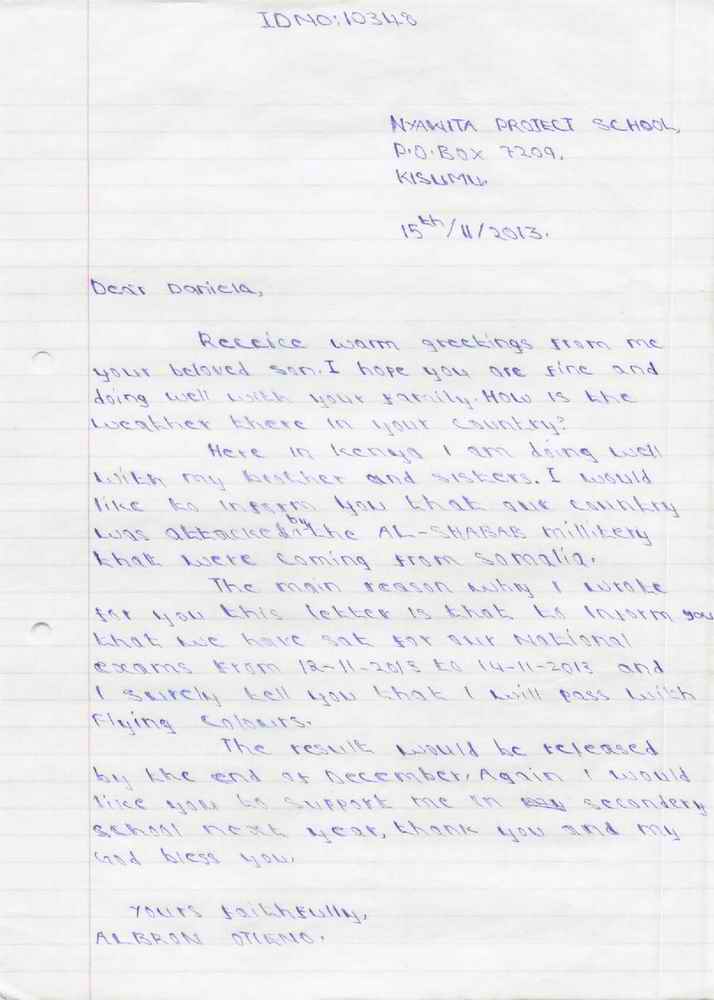 ID NO: 10348
NYAWITA PROJECT SCHOOL,
P.O.BOX 7209,
KISUMU.
15th/11/2013.
Dear Daniela,
Receice warm greetings from me
your beloved son. I hope you are fine and
doing well with your family. How is the
weather there in your country?
Here in Kenya I am doing well
with my brother and sisters. I would
like to inform you that our country
was attacked by the AL-SHABAB millitery
that were coming from somalia.
The main reason why I wrote
for you this letter is that to inform you
that we have sat for our National
exams from 12-11-2013 to 14-11-2013 and
I surely tell you that I will pass with
Flying colours.
The result would be released
by the end of December, Again I would
like you to support me in secondery
school next year, thank you and my
God bless you.
Yours faithfully,
ALBRON OTIENO.